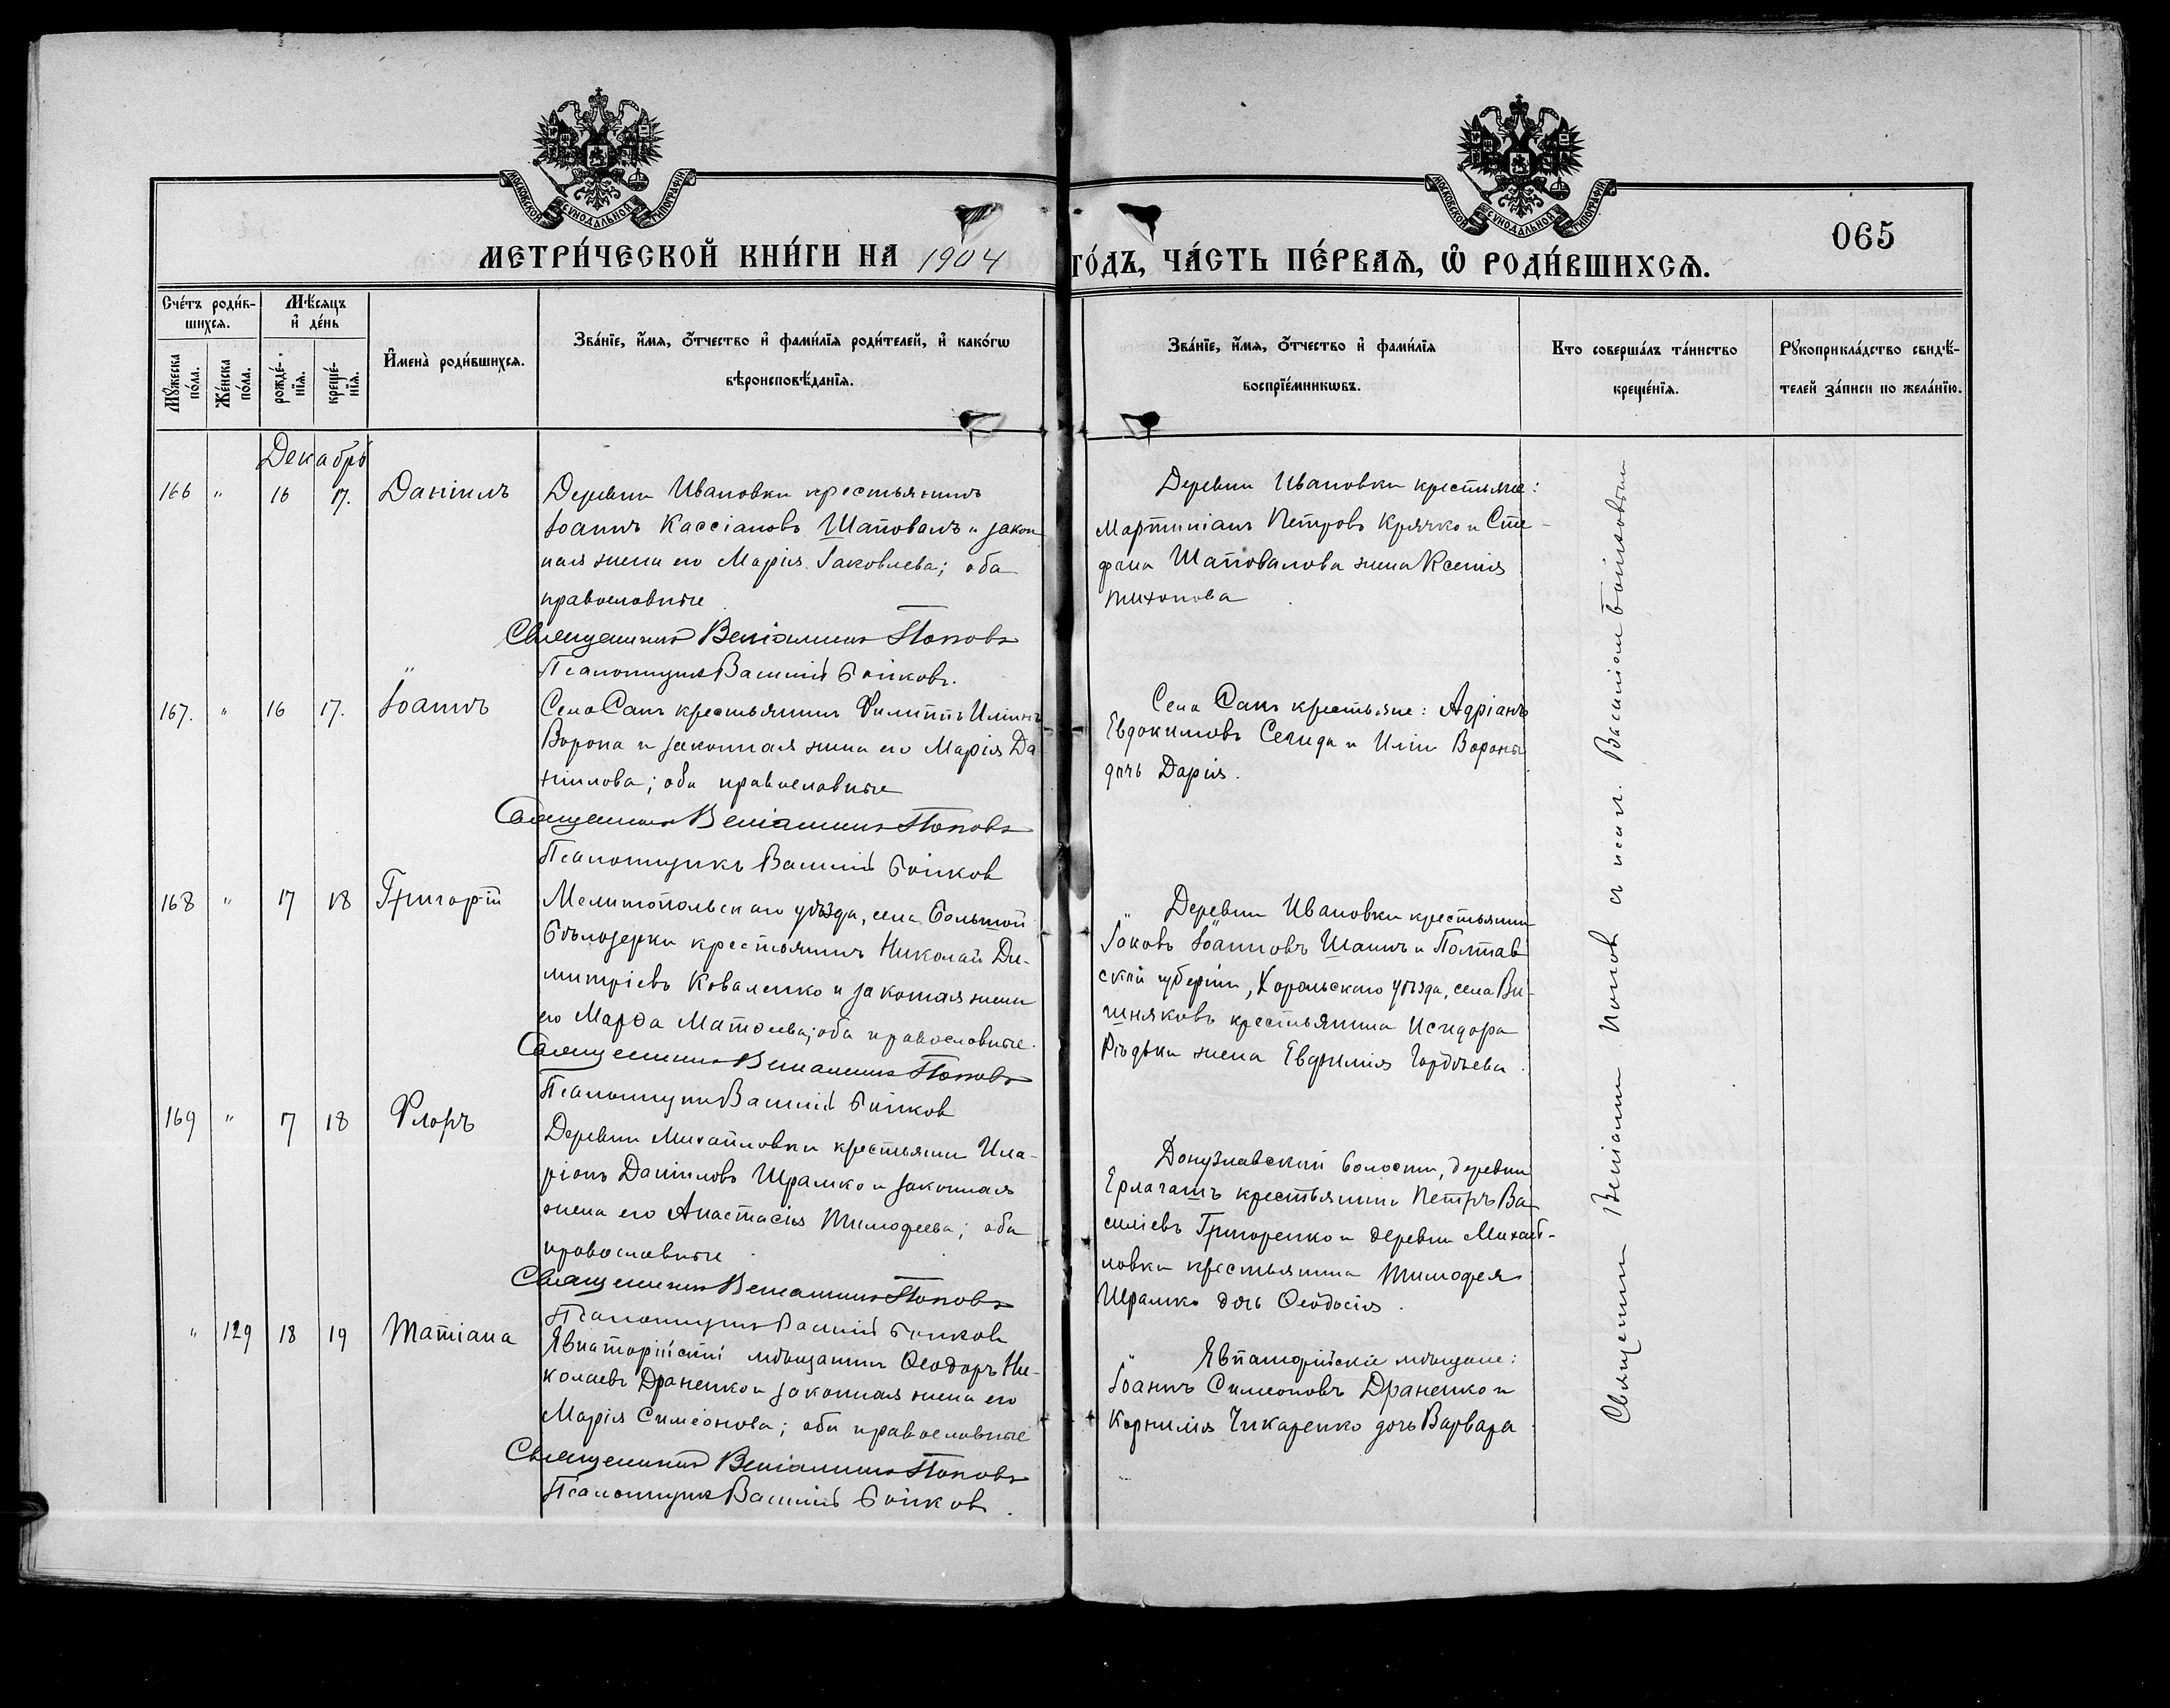 МОСКОВСКОЙ СѴНОДАЛЬНОЙ ТИПОГРАФІИ
МОСКОВСКОЙ СѴНОДАЛЬНОЙ ТИПОГРАФІИ
065
МЕТРИ́ЧЕСКОЙ КНИ́ГИ НА 1904 ГО́ДЪ, ЧА́СТЬ ПЕ́РВАЯ, Ѡ РОДИ́ВШИХСЯ.
Сче́тъ роди́в-
шихся.
Мѣ́сяцъ
и҆ де́нь
Мꙋ́жеска по́ла.
Же́нска по́ла.
рожде́-нїя.
креще́-нїя.
И҆мена̀ роди́вшихся.
Зва́нїе, и҆́мя, ѻ҆́тчество и҆ фами́лїя роди́телей, и҆ како́гѡ
вѣроисповѣ́данїя.
Зва́нїе, и҆́мя, ѻ҆́тчество и҆ фами́лїя
воспрїе́мникѡвъ.
Кто соверша́лъ та́инство
креще́нїя.
Рꙋкоприкла́дство свидѣ́-
телей за́писи по жела́нїю.
Декабрь
166 " 16 17. Даніилъ
Деревни Ивановки крестьянинъ
Іоаннъ Кассіановъ Шаповалъ и закон
ная жена его Марія Іаковлева; оба
православные
Священникъ Веніаминъ Поповъ
Псаломщикъ Василій Бойковъ.
Деревни Ивановки крестьяне:
Мартиніанъ Петровъ Крячко и Сте-
фана Шаповалова жена Ксенія
Тихонова
167. " 16 17. Іоаннъ
Села Сакъ крестьянинъ Филиппъ Иліинъ
Ворона и законная жена его Марія Да
ніилова; оба православные
Священникъ Веніаминъ Поповъ
Псаломщикъ Василій Бойков
Села Сакъ крестьяне: Адріанъ
Евдокимовъ и Иліи Вороны
дочь Дарія.
168 " 17 18 Григорій
Мелитопольскаго уѣзда, села Большой
Бѣлозерки крестьянинъ Николай Ди-
митріевъ Коваленко и законая жена
его Марѳа Матѳеева; оба православные.
Священникъ Веніаминъ Поповъ
Псаломщикъ Василій Бойков
Деревни Ивановки крестьянинъ
Іаковъ Іоанновъ и Полтав
ской губерніи, Хорольскаго уѣзда, села Ви-
шняковъ крестьянина Исидора
жена Евфимія Гордѣева.
169 " 17 18 Флоръ
Деревни Михайловки крестьянин Ила-
ріонъ Даніиловъ Шрамко и законная
жена его Анастасія Тимофеева; оба
православные.
Священникъ Веніаминъ Поповъ
Псаломщикъ Василій Бойков
Донузлавской волости, деревни
крестьянинъ Петръ Ва
силіевъ Григоренко и деревни Михай-
ловки крестьянина Тимофея
Шрамко дочь Ѳеодосія.
" 129 18 19 Татіана
Евпаторійскій мѣщанинъ Ѳеодоръ Ни-
колаевъ Драненко и законная жена его
Марія Симеонова; оба православные
Священникъ Веніаминъ Поповъ
Псаломщикъ Василій Бойков.
Евпаторійскіе мѣщане:
Іоаннъ Симеоновъ Драненко и
Корнилія Чикаренко дочь Варвара
Священник Веніамин Попов с псал. Василіем Бойковым